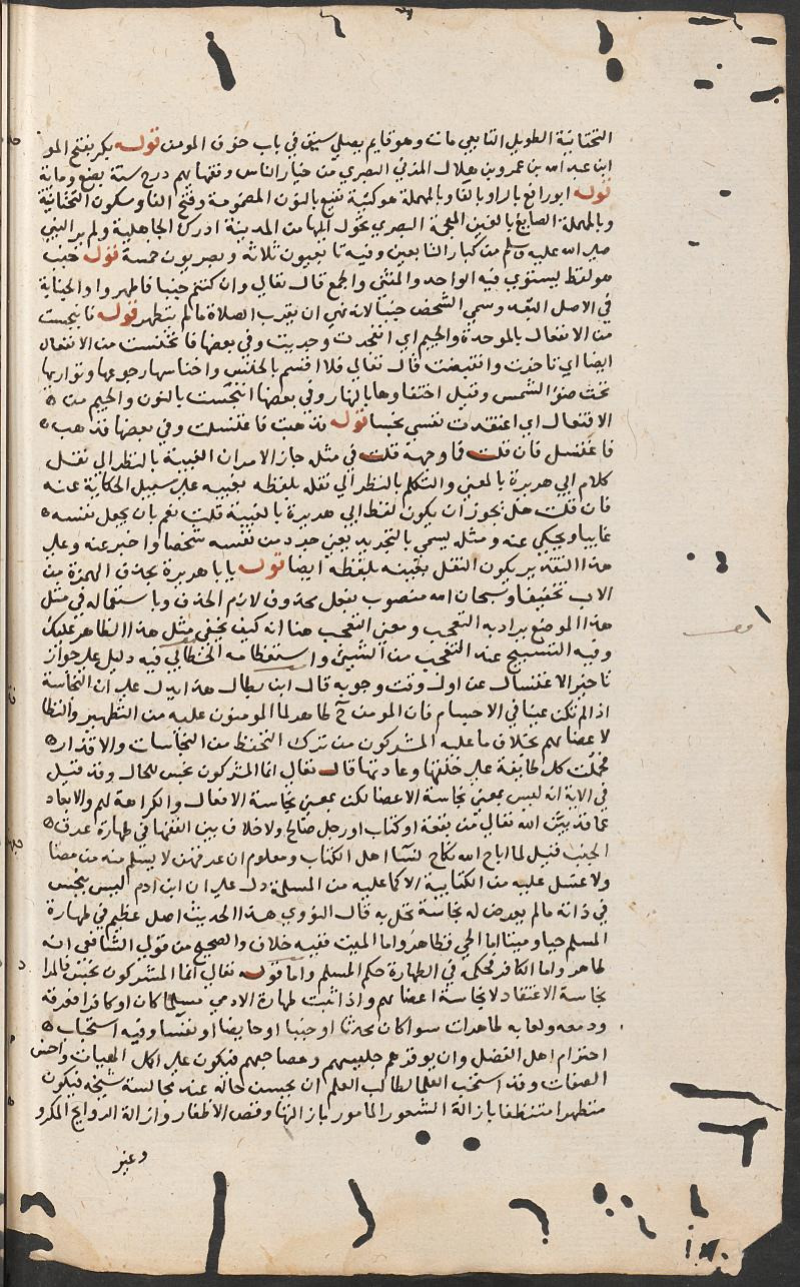 التحتانية الطويل التابعي مات وهو قايم يصلي سبق في باب خوف المومن قوله بكر بفتح المو
ابن عبد الله بن عمرو بن هلال المدني البصري من خيار الناس وفقهايهم درج سنة بضع وماية
قوله ابو رافع بالرا وبالفا وبالمهملة هو كنية نفيع بالنون المضمومة وفتح الفا وسكون التحتانية
وبالمهملة الصايغ بالغين المعجمة البصري تحول اليها من المدينة ادرك الجاهلية ولم ير النبي
صلى الله عليه وسلم من كبار التابعين وفيه تابعيون ثلاثة وبصريون خمسة قوله جنب
هو لفظ يستوي فيه الواحد والمثنى والجمع قال تعالى وان كنتم جنبا فاطهروا والجنابة
في الاصل البعد وسمي الشخص جنبا لانه نهي ان يقرب الصلاة ما لم يتطهر قوله فانبجست
من الانفعال بالموحدة والجيم اي اندفعت وجريت وفي بعضها فانخنست من الانفعال
ايضا اي تاخرت وانقبضت قال تعالى فلا اقسم بالخنس واخناسها رجوعها وتواريها
تحت ضوء الشمس وقيل اختفاوها بالنهار وفي بعضها انتجست بالنون والجيم من
الافتعال اي اعتقدت نفسي نجسا قوله فذهبت فاغتسلت وفي بعضها فذهب
فاغتسل فان قلت فما وجهه قلت في مثل جاز الامران الغيبة بالنظر الى نقل
كلام ابي هريرة بالمعنى والتكلم بالنظر الى نقله بلفظه بعينه على سبيل الحكاية عنه
فان قلت هل يجوز ان يكون لفظ ابي هريرة بالغيبة قلت نعم بان يجعل نفسه
غايبا ويحكي عنه ومثله يسمى بالتجريد يعني جرد من نفسه شخصا واخبر عنه وعلى
هذا التقدير يكون النقل بعينه بلفظه ايضا قوله يابا هريرة بحذف الهمزة من
الاب تخفيفا وسبحان الله منصوب بفعل محذوف لازم الحذف وباستعماله في مثل
هذا الموضع يراد به التعجب ومعنى التعجب هنا انه كيف يخفى مثل هذا الظاهر عليك
وفيه التسبيح عند التعجب من الشيء واستعظامه الخطابي فيه دليل على جواز
تاخير الاغتسال عن اول وقت وجوبه قال ابن بطال هذا يدل على ان النجاسة
اذا لم تكن عينا في الاجسام فان المومن ح طاهر لما المومنون عليه من التطهير والنظا
لاعضايهم بخلاف ما عليه المشركون من ترك التحفظ من النجاسات والاقذار
فحملت كل طايفة على خلقها وعادتها قال تعالى انما المشركون نجس للحال وقد قيل
في الاية انه ليس بمعنى نجاسة الاعضا لكن بمعنى نجاسة الافعال والكراهة لهم والابعاد
عما قدس الله تعالى من بقعة او كتاب او رجل صالح ولا خلاف بين الفقها في طهارة عرق
الجنب قيل لما اباح الله نكاح نسا اهل الكتاب ومعلوم ان عرقهن لا يسلم منه من مضا
ولا غسل عليه من الكتابية الا كما عليه من المسلمة دل على ان ابن ادم ليس بنجس
في ذاته ما لم يعرض له نجاسة تحل به قال النووي هذا الحديث اصل عظيم في طهارة
المسلم حيا وميتا اما الحي فطاهر واما الميت ففيه خلاف والصحيح من قولي الشافعي انه
طاهر واما الكافر فحكمه في الطهارة حكم المسلم واما قوله تعالى انما المشركون نجس فالمرا
نجاسة الاعتقاد لا نجاسة اعضايهم واذا ثبت طهارة الادمي مسلما كان او كافرا فعرقه
ودمعه ولعابه طاهرات سوا كان محدثا او جنبا او حايضا او نفسا وفيه استحباب
احترام اهل الفضل وان يوقرهم جليسهم ومصاحبهم فيكون على اكمل الهيات واحسن
الصفات وقد استحب العلما لطالب العلم ان يحسن حاله عند مجالسة شيخه فيكون
متطهرا متنظفا بازالة الشعور المامور بازالتها وقص الاظفار وازالة الروايح المكرو
وغير